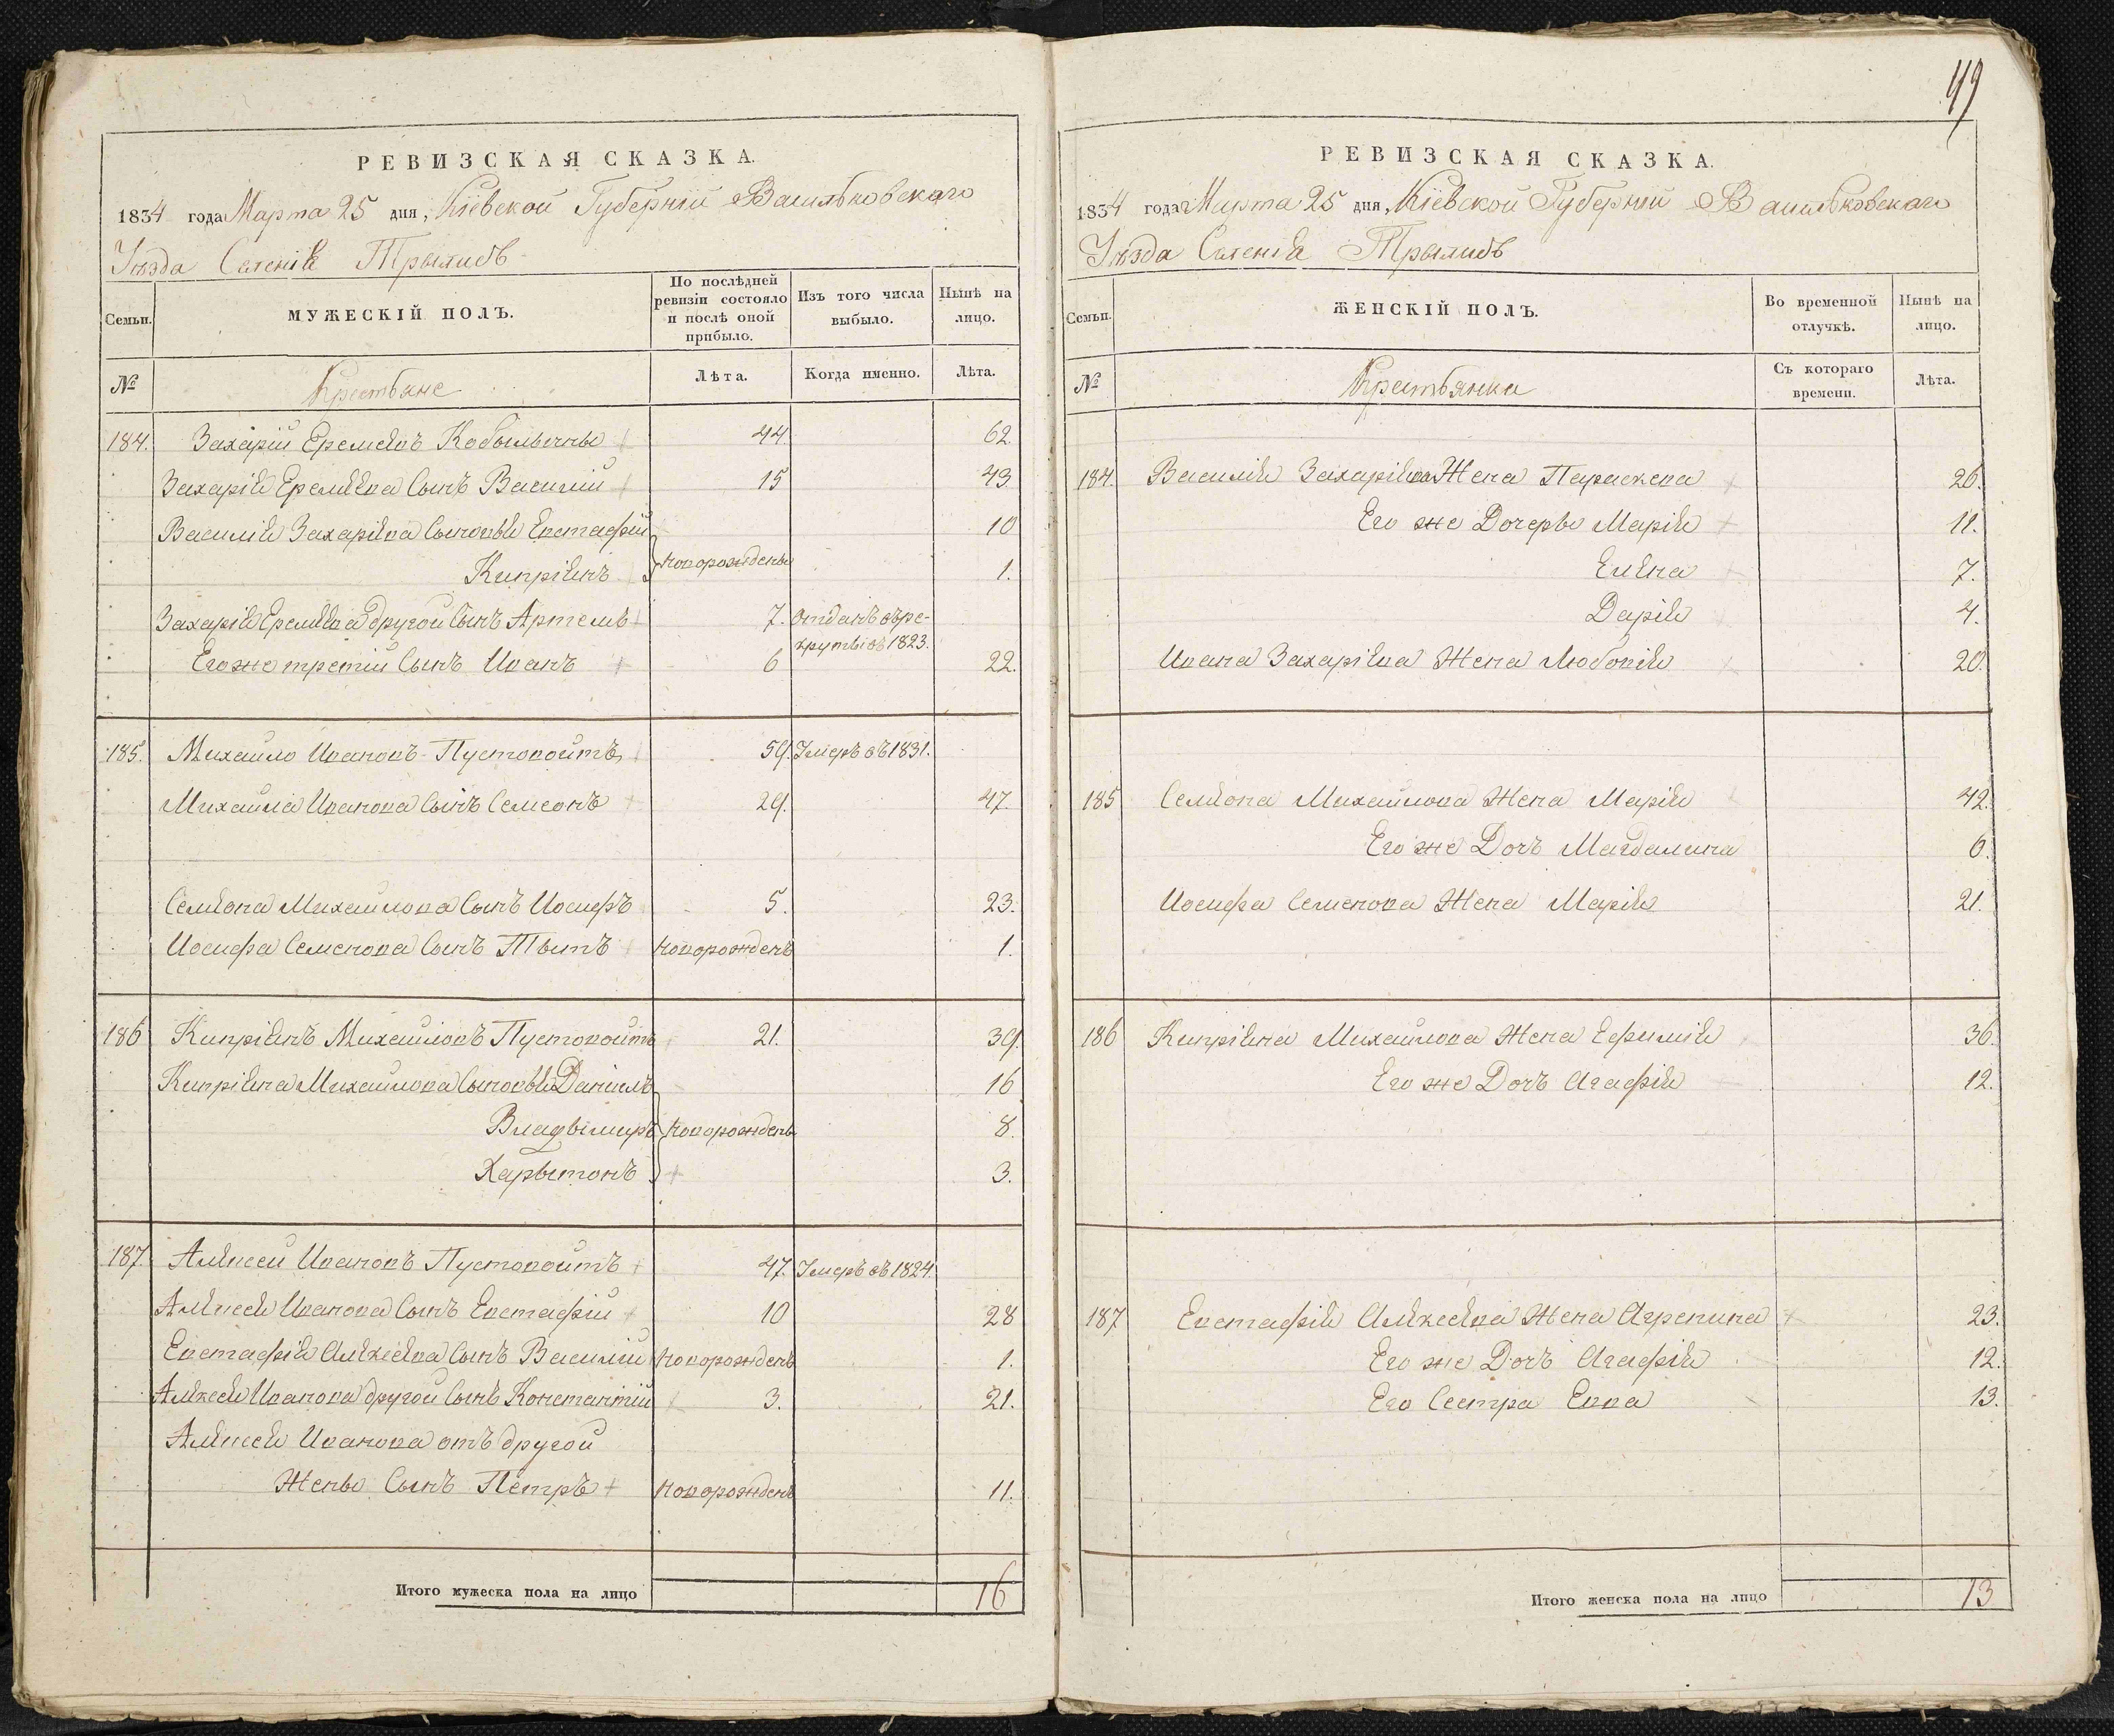 РЕВИЗСКАЯ СКАЗКА.
1834 года Марта 25 дня, Кіевской Губерніи Васильковскаго
Уѣзда Селенія Трылисъ
Семьи.
МУЖЕСКІЙ ПОЛЪ.
По послѣдней ревизіи состояло и послѣ оной прибыло.
Изъ того числа выбыло.
Нынѣ на лицо.
№
Крестьяне
Лѣта.
Когда именно.
Лѣта.
184. Захарій Еремѣевъ Кобыльчны 44 62.
Захарія Еремѣева Сынъ Василій 15 43
Василія Захаріева Сыновья Евстафій 10
Кипріянъ новорождены 1.
Захарія Еремѣева другой Сынъ Артемъ 7. отданъ въ ре-
круты въ 1823.
Его же третій Сынъ Иванъ 6 22.
185. Михайло Ивановъ Пустовойтъ 59. Умеръ въ 1831.
Михайла Иванова Сынъ Семеонъ 29. 47.
Семіона Михайлова Сынъ Иосифъ 5. 23.
Иосифа Семенова Сынъ Тытъ новорожденъ 1.
186 Кипріянъ Михайловъ Пустовойтъ 21. 39.
Кипріяна Михайлова Сыновья Даніилъ 16
Владымиръ новорождены 8.
Харытонъ 3.
187. Алѣксей Ивановъ Пустовойтъ 47. Умеръ въ 1824.
Алѣксея Иванова Сынъ Евстафій 10 28
Евстафія Алѣксеева Сынъ Василій новорожденъ 1.
Алѣксея Иванова другой Сынъ Константій 3. 21.
Алѣксея Иванова отъ другой
Жены Сынъ Петръ новорожденъ 11.
Итого мужеска пола на лицо 16
49
РЕВИЗСКАЯ СКАЗКА.
1834 года Марта 25 дня, Кіевской Губерніи Васильковскаго
Уѣзда Селенія Трылисъ
Семьи.
ЖЕНСКІЙ ПОЛЪ.
Во временной отлучкѣ.
Нынѣ на лицо.
№
Крестьянки
Съ котораго времени.
Лѣта.
184. Василія Захаріева Жена Параскева 26.
Его же Дочеры Марія 11.
Елена 7.
Дарія 4.
Ивана Захаріева Жена Любовія 20.
185 Семіона Михайлова Жена Марія 42.
Его же Дочъ Магдалина 6.
Иосифа Семенова Жена Марія 21.
186 Кипріяна Михайлова Жена Ефимія 36.
Его же Дочъ Агафія 12.
187 Евстафія Алѣксеева Жена Агрепина 23.
Его же Дочъ Агафія 12.
Его Сестра Евва 13.
Итого женска пола на лицо 13